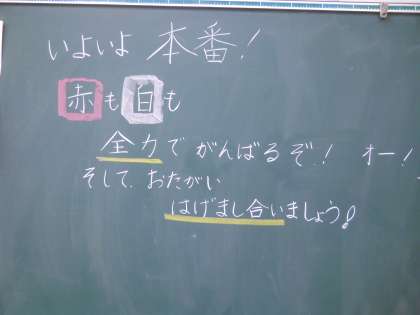 いよいよ 本番!
赤も白も
全力で がんばるぞ! オー!
そして、おたがい
はげまし合いましょう!